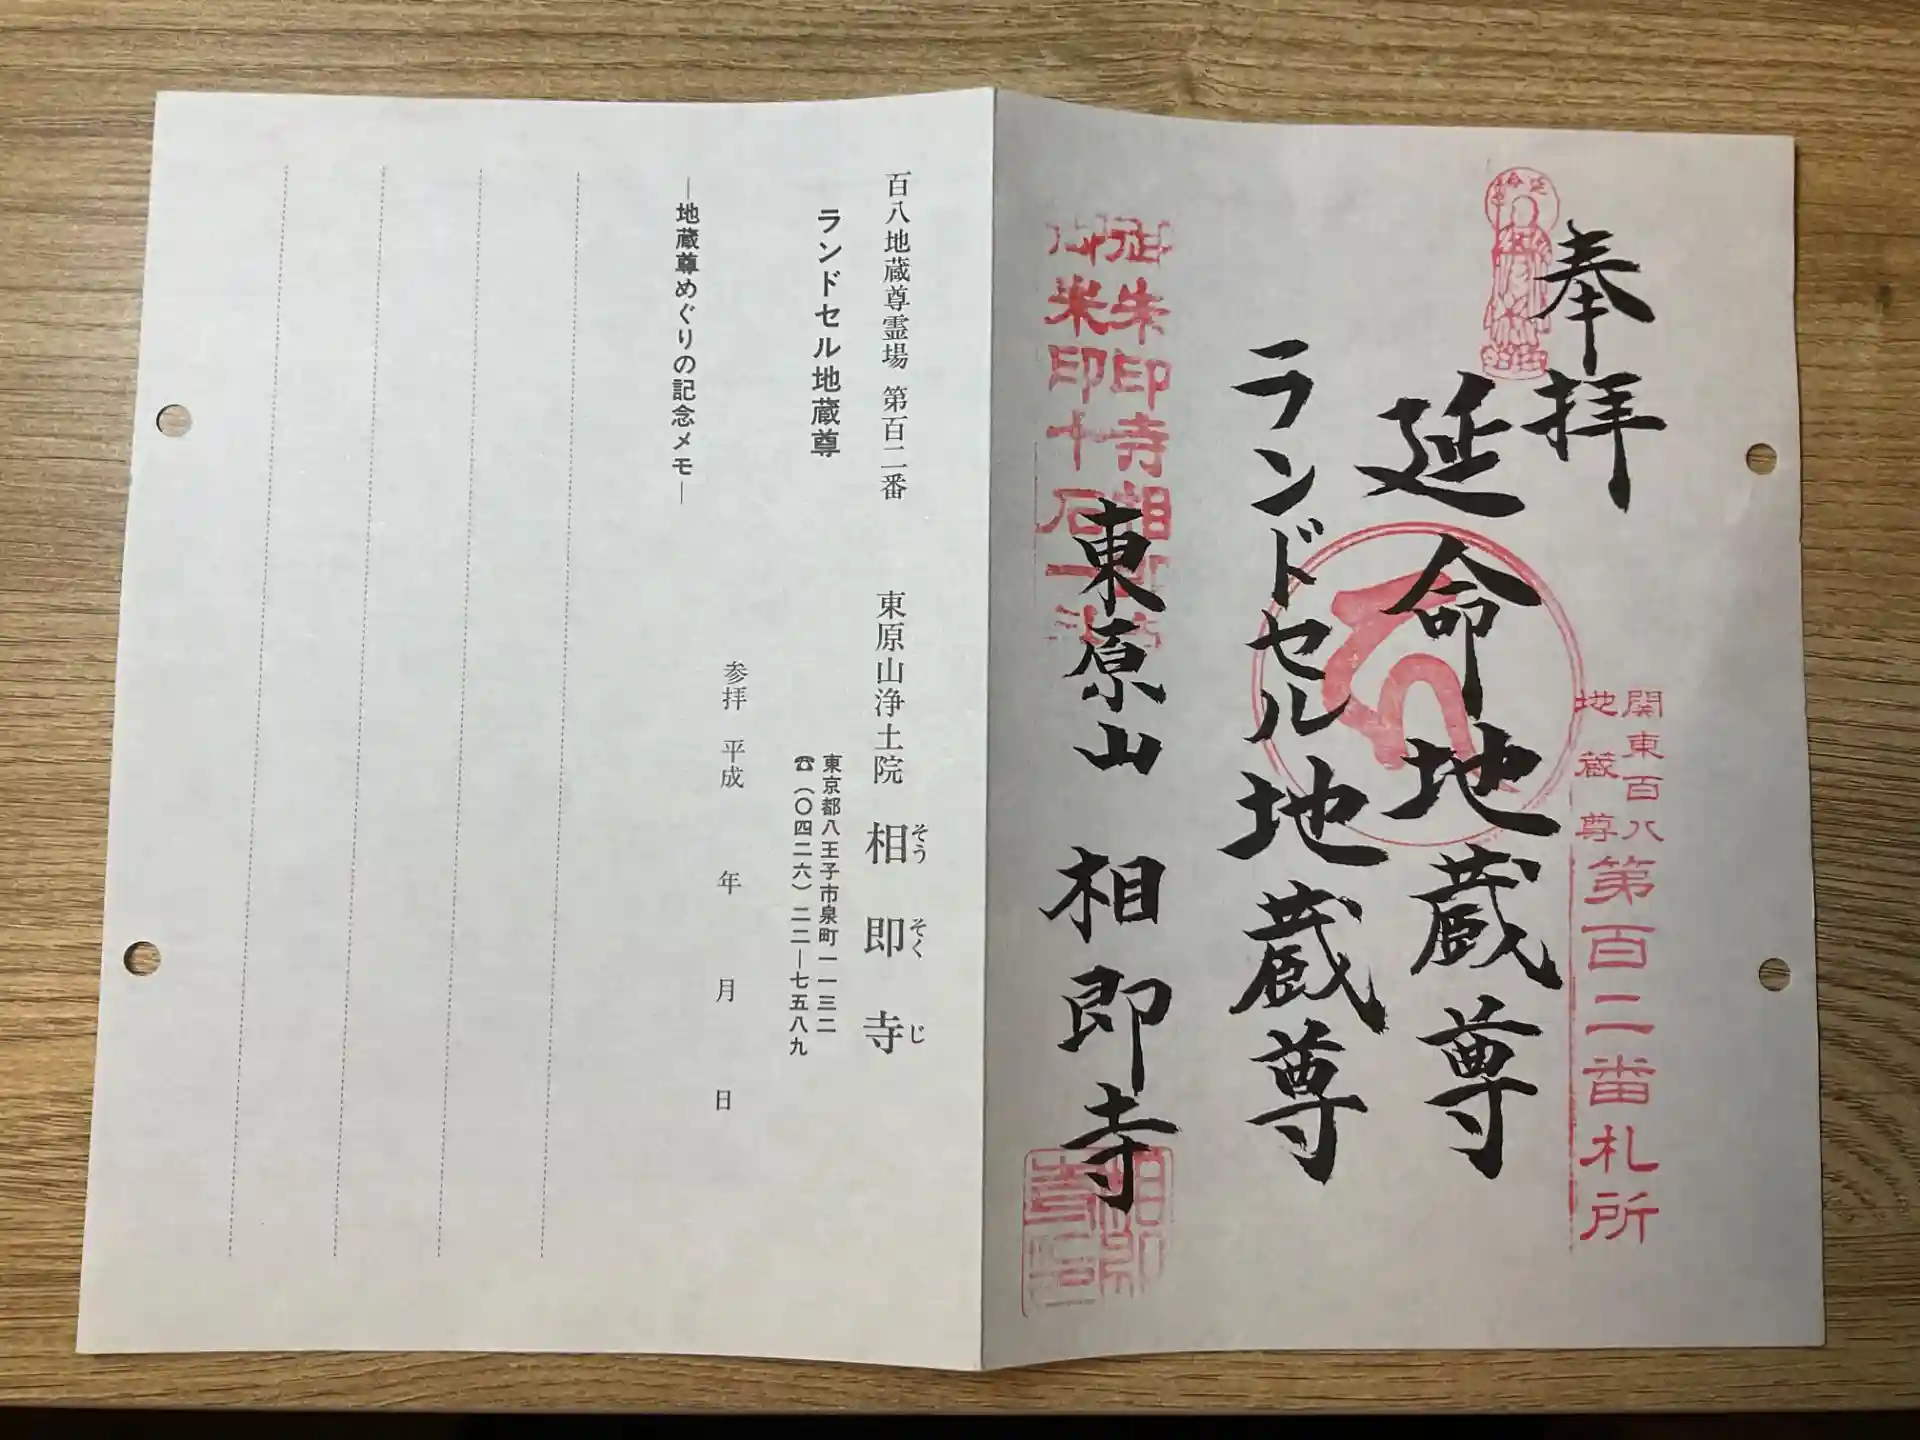 奉拝
延命地蔵尊
ランドセル地蔵尊
東原山 相即寺
関東百八
地蔵尊
第百二番札所
御朱印寺相即寺
御朱印十石一斗
百八地蔵尊霊場 第百二番 東原山浄土院 相即寺
そうそくじ
ランドセル地蔵尊
東京都八王子市泉町一一三二
☎(〇四二六)二二―七五八九
参拝 平成 年 月 日
―地蔵尊めぐりの記念メモ―